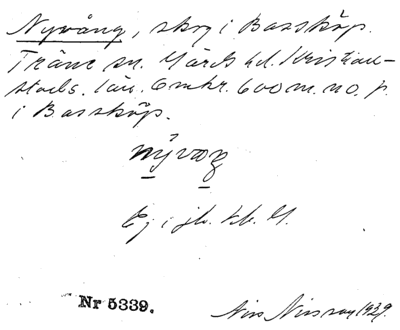 Nyvång, skog i Bassköp.
Träne sn. Gärds hd. Kristian-
stads. län. Omkr. 600 m. n.o. p.
i Bassköp.
nývaŋ
Ej i jb. kb. G.
Nr 5339.
Nils Nilsson 1929.